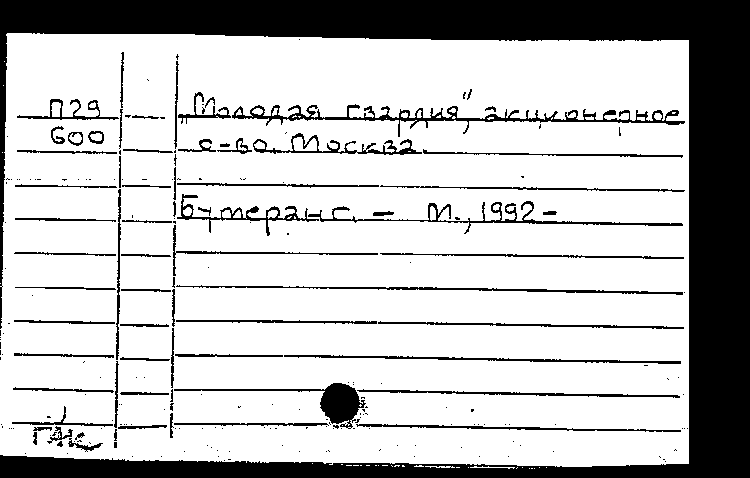 П29 „Молодая гвардия", акционерное
600 о-во. Москва.
Бумеранг. — М., 1992 –